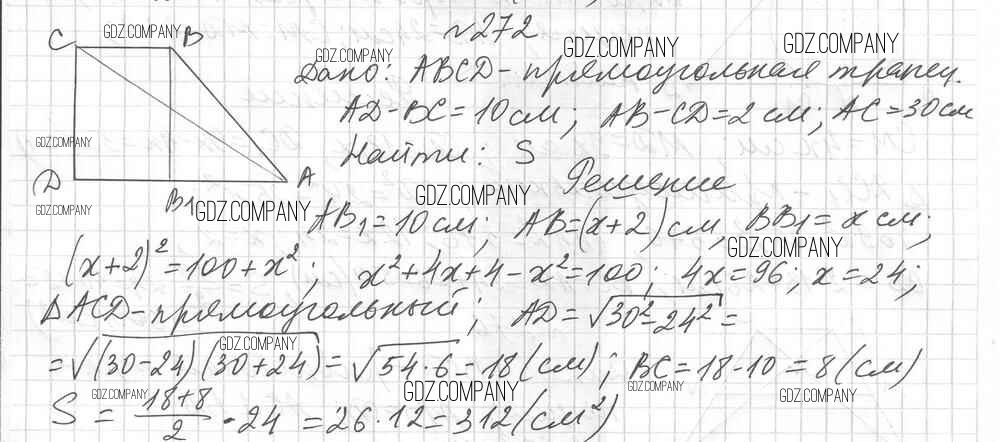 №272
C GDZ.COMPANY B
GDZ.COMPANY GDZ.COMPANY GDZ.COMPANY
Дано: ABCD - прямоугольная трапец.
AD-BC=10 см; AB-CD=2 см; AC=30 см
GDZ.COMPANY
Найти: S
D A
Решение
GDZ.COMPANY
GDZ.COMPANY B1 GDZ.COMPANY
AB1=10 см; AB=(x+2) см, BB1=x см;
GDZ.COMPANY
(x+2)²=100+x²; x²+4x+4-x²=100; 4x=96; x=24;
ΔACD - прямоугольный; AD=√30²-24²=
GDZ.COMPANY
=√(30-24)(30+24)=√54·6=18(см); BC=18-10=8(см)
GDZ.COMPANY GDZ.COMPANY GDZ.COMPANY GDZ.COMPANY
S=18+8/2·24=26·12=312(см²)